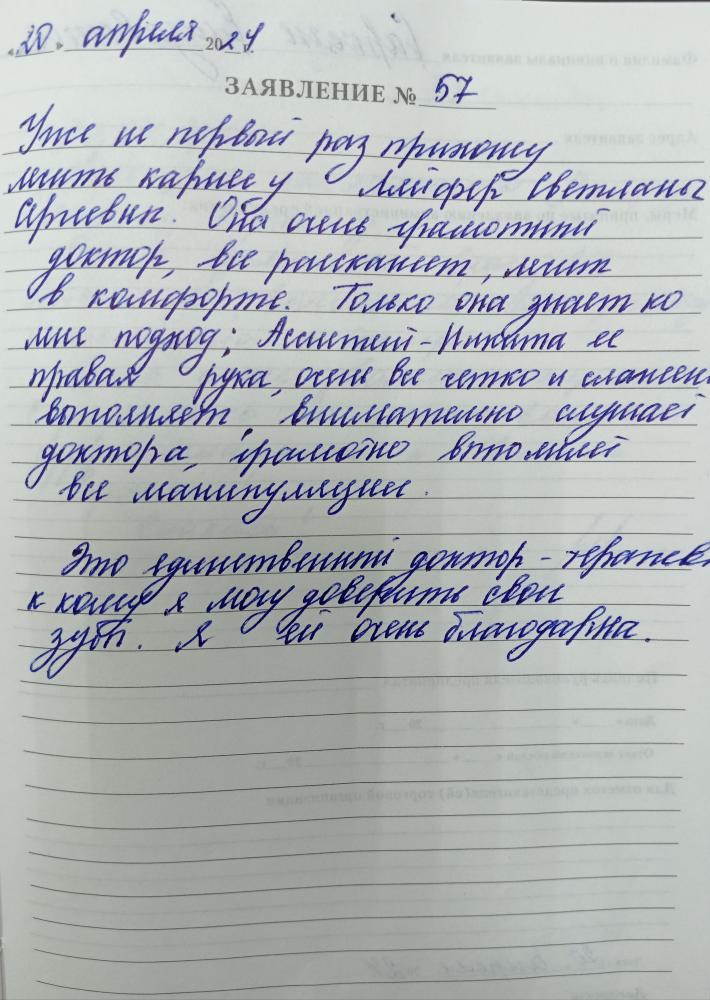 «20» апреля 2024 г.
ЗАЯВЛЕНИЕ № 57
Уже не первый раз прихожу
лечить кариес у Ляйфер Светланы
Она очень грамотный
доктор, все расскажет, лечит
в комфорте. Только она знает ко
мне подход; Ассистент - Никита ее
правая рука, очень все четко и слаженн
выполняет, внимательно слушает
доктора, грамотно выполняет
все манипуляции.
Это единственный доктор - терапев
к кому я могу доверить свои
зубы. Я ей очень благодарна.